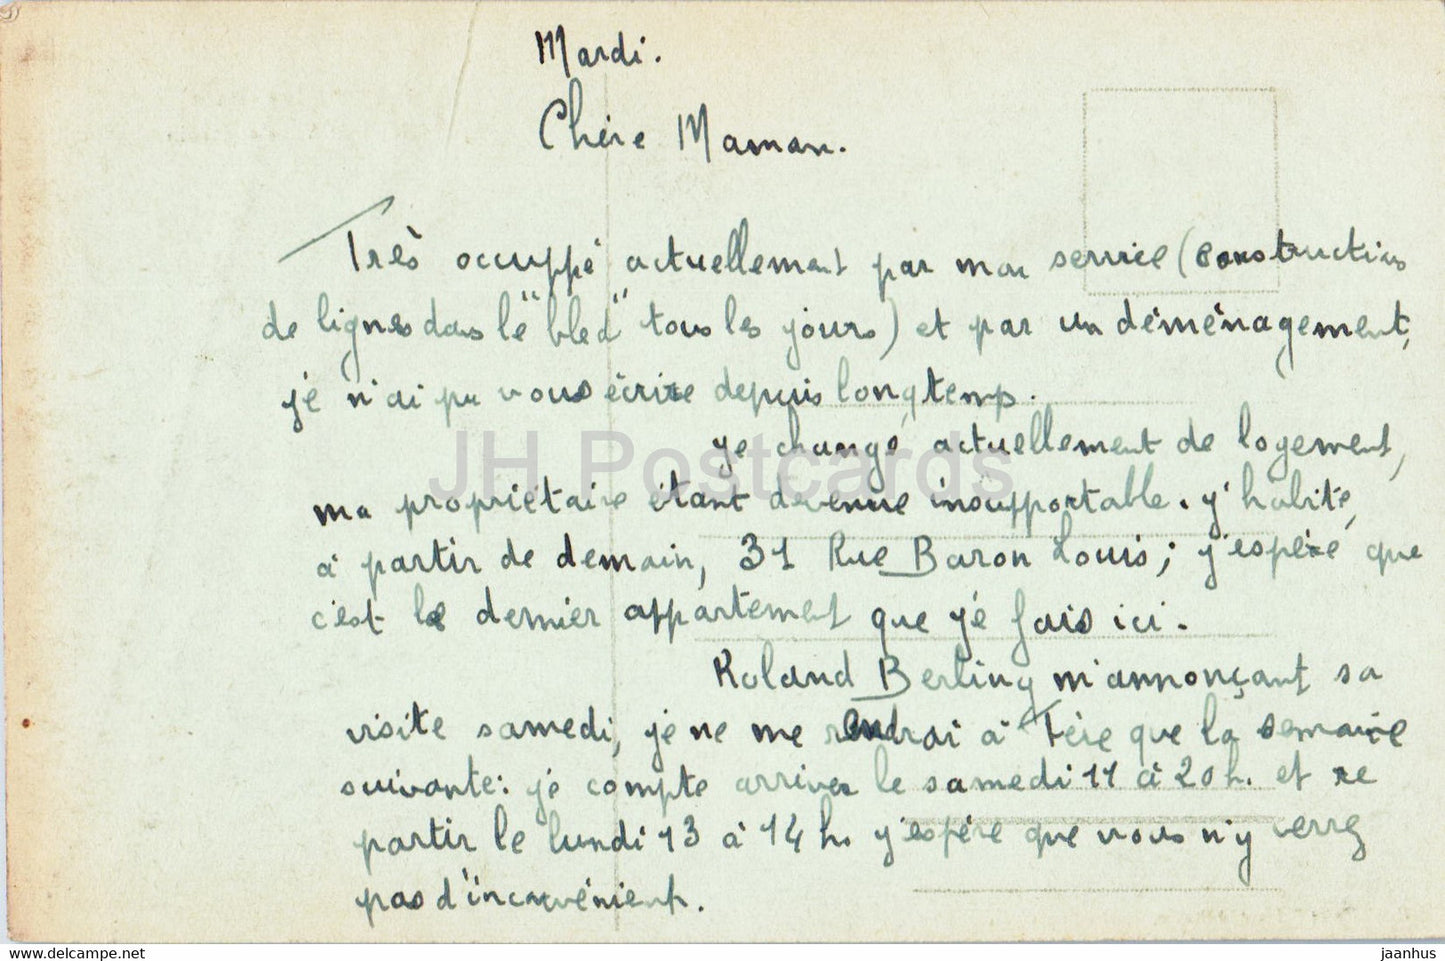 Mardi.
Chère Maman.
Très occuppé actuellement par mon service (construction
de lignes dans le "bled" tous les jours) et par un déménagement,
je n'ai pu vous écrire depuis longtemps.
je change actuellement de logement,
ma propriétaire étant devenue insupportable. j'habite,
à partir de demain, 31 Rue Baron Louis; j'espère que
c'est le dernier appartement que je fais ici.
Roland Berling m'annonçant sa
visite samedi, je ne me rendrai à Fère que la semaine
suivante: je compte arriver le samedi 11 à 20h. et re
partir le lundi 13 à 14h. j'espère que vous n'y verrez
pas d'inconvénient.
JH Postcards
www.delcampe.net
jaanhus